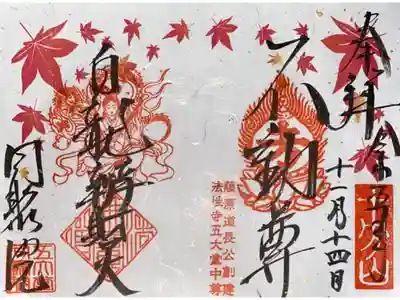 奉拝
十一月十四日
不動尊
藤原道長公創建
法性寺五大堂中尊
白龍辨財天
同聚院